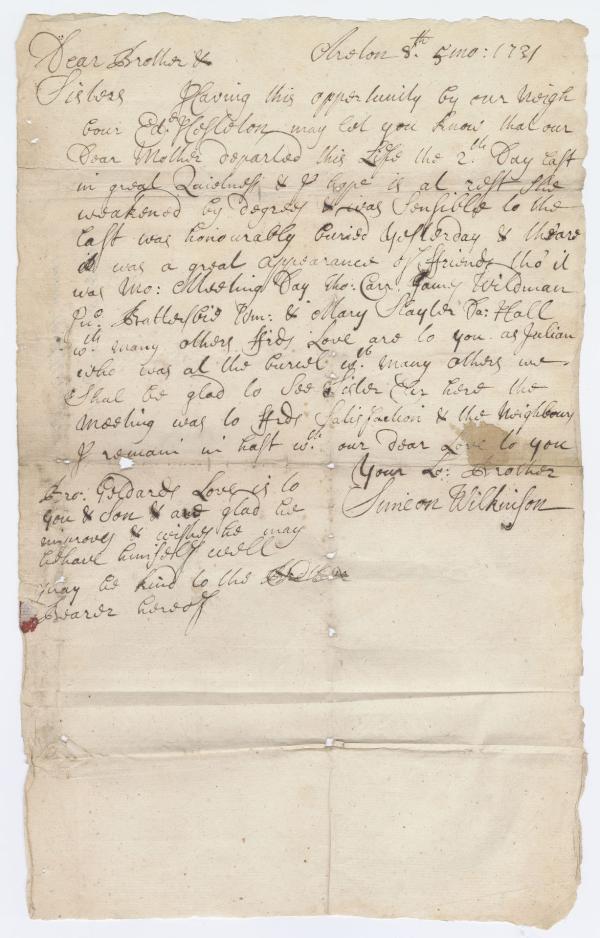 Dear Brother & Areton 8.th 5mo: 1731
Sisters Having this opportunity by our Neigh
bour Ed: Hesleton may let you know that our
Dear Mother departed this Life the 2.th Day last
in great Quietness & I hope is at rest she
weakened by degrees & was Sensible to the
last was honourably buried yesterday & theare
was a great appearance of ffriends tho' it
was Mo: Meeting Day Tho: Carr James Wildman
Jno. Battersbie Wm: & Mary Slayter Da: Hall
wth. many others ffrds Love are to you as Julian
who was at the buriel wth. many others we
Shal be glad to See Sister here the
Meeting was to ffrds Satisfaction & the Neighbours
I remain in hast wth. our dear Love to you
Your Lo: Brother
Simeon Wilkinson
Bro: Geldards Love is to
you & Son & are glad he
improves & wishes he may
behave himself well
may be kind to the
Bearer hereof